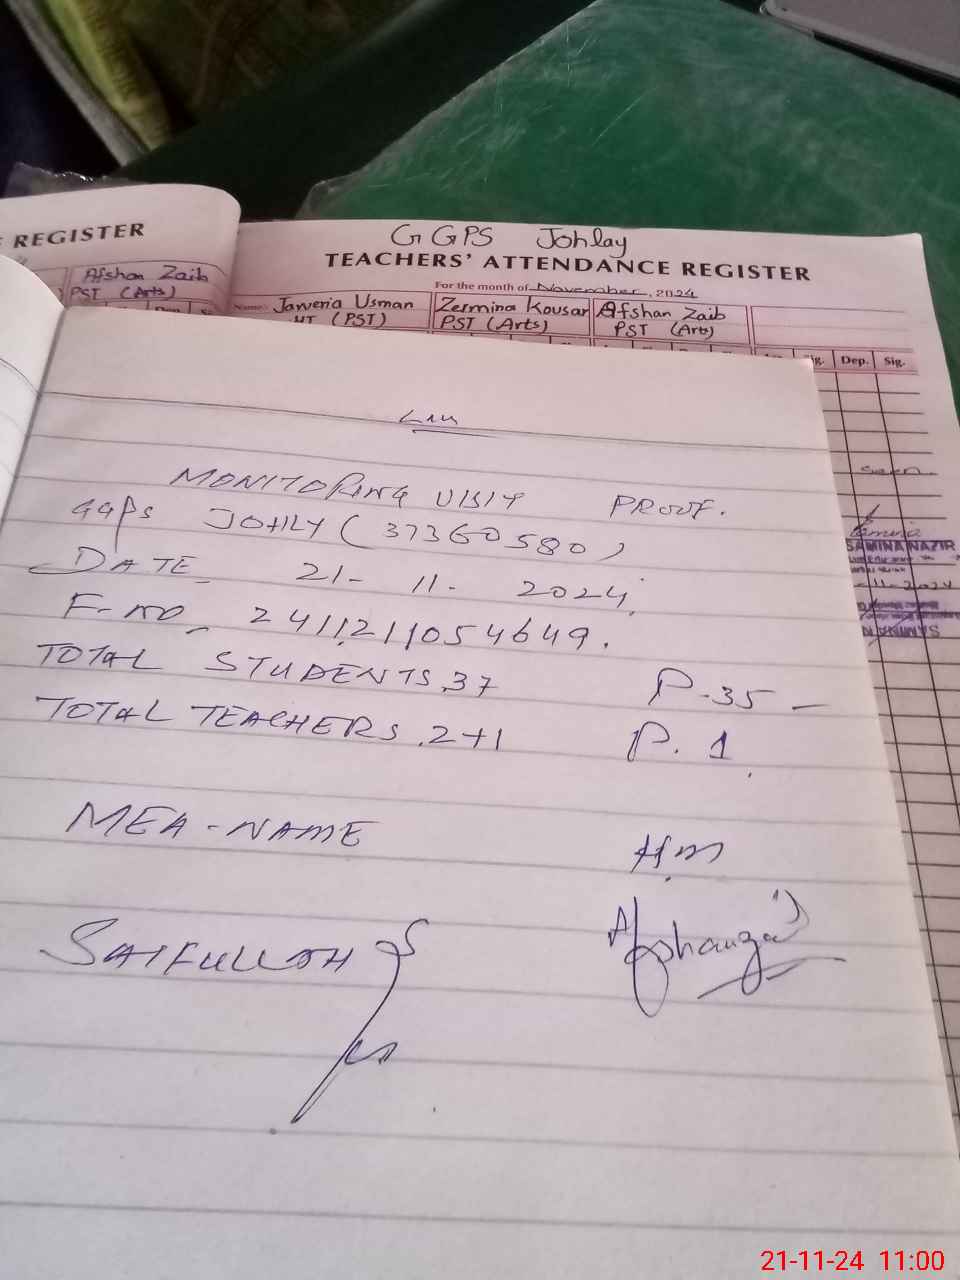 REGISTER
Afshan Zaib
PST (Arts)
GGPS Johlay
TEACHERS' ATTENDANCE REGISTER
For the month of November, 2024
Name: Jaweria Usman Zermina Kousar Afshan Zaib
HT (PST) PST (Arts) PST (Arts)
Sig. Dep. Sig.
MONITORING VISIT PROOF.
GGPS JOHLY (37360580)
DATE_ 21-11-2024.
F-NO_ 241121105 4649.
TOTAL STUDENTS.37 P-35-
TOTAL TEACHERS.2+1 P.1.
MEA-NAME H.M
SAIFULLAH Afshanzai
SAMINA NAZIR
-11-2024
21-11-24 11:00